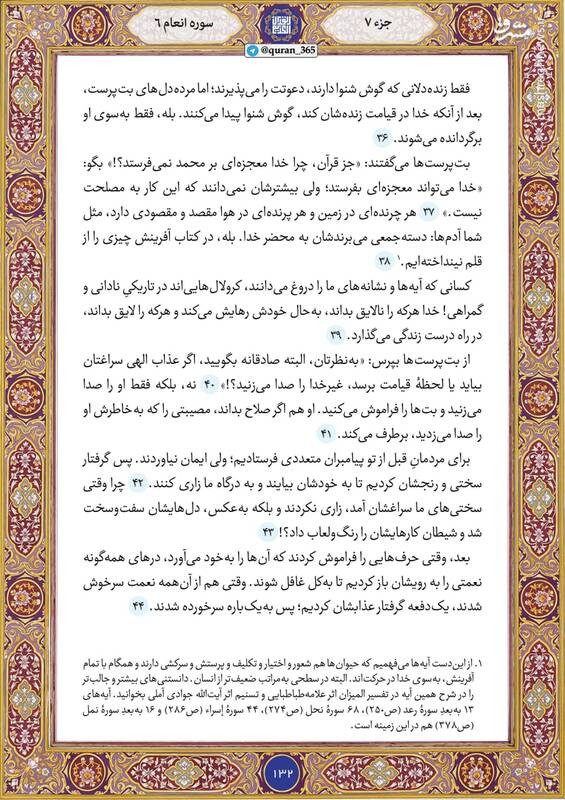 جزء ۷
سوره انعام ۶
@quran_365
مشرق
فقط زنده‌دلانی که گوش شنوا دارند، دعوتت را می‌پذیرند؛ اما مرده‌دل‌های بت‌پرست،
بعد از آنکه خدا در قیامت زنده‌شان کند، گوش شنوا پیدا می‌کنند. بله، فقط به‌سوی او
برگردانده می‌شوند. ۳۶
بت‌پرست‌ها می‌گفتند: «جز قرآن، چرا خدا معجزه‌ای بر محمد نمی‌فرستد؟!» بگو:
«خدا می‌تواند معجزه‌ای بفرستد؛ ولی بیشترشان نمی‌دانند که این کار به مصلحت
نیست.» ۳۷ هر چرنده‌ای در زمین و هر پرنده‌ای در هوا مقصد و مقصودی دارد، مثل
شما آدم‌ها: دسته‌جمعی می‌برندشان به محضر خدا. بله، در کتاب آفرینش چیزی را از
قلم نینداخته‌ایم.۱ ۳۸
کسانی که آیه‌ها و نشانه‌های ما را دروغ می‌دانند، کرولال‌هایی‌اند در تاریکیِ نادانی و
گمراهی! خدا هرکه را نالایق بداند، به‌حال خودش رهایش می‌کند و هرکه را لایق بداند،
در راه درست زندگی می‌گذارد. ۳۹
از بت‌پرست‌ها بپرس: «به‌نظرتان، البته صادقانه بگویید، اگر عذاب الهی سراغتان
بیاید یا لحظهٔ قیامت برسد، غیرخدا را صدا می‌زنید؟!» ۴۰ نه، بلکه فقط او را صدا
می‌زنید و بت‌ها را فراموش می‌کنید. او هم اگر صلاح بداند، مصیبتی را که به‌خاطرش او
را صدا می‌زدید، برطرف می‌کند. ۴۱
برای مردمانِ قبل از تو پیامبران متعددی فرستادیم؛ ولی ایمان نیاوردند. پس گرفتار
سختی و رنجشان کردیم تا به خودشان بیایند و به درگاه ما زاری کنند. ۴۲ چرا وقتی
سختی‌های ما سراغشان آمد، زاری نکردند و بلکه به‌عکس، دل‌هایشان سفت‌وسخت
شد و شیطان کارهایشان را رنگ‌ولعاب داد؟! ۴۳
بعد، وقتی حرف‌هایی را فراموش کردند که آن‌ها را به‌خود می‌آورد، درهای همه‌گونه
نعمتی را به رویشان باز کردیم تا به‌کل غافل شوند. وقتی هم از آن‌همه نعمت سرخوش
شدند، یک‌دفعه گرفتار عذابشان کردیم؛ پس به‌یک‌باره سرخورده شدند. ۴۴
۱. از این‌دست آیه‌ها می‌فهمیم که حیوان‌ها هم شعور و اختیار و تکلیف و پرستش و سرکشی دارند و همگام با تمام
آفرینش، به‌سوی خدا در حرکت‌اند. البته در سطحی به‌مراتب ضعیف‌تر از انسان. دانستنی‌های بیشتر و جالب‌تر
را در شرح همین آیه در تفسیر المیزان اثر علامه‌طباطبایی و تسنیم اثر آیت‌الله جوادی آملی بخوانید. آیه‌های
۱۳ به‌بعدِ سورهٔ رعد (ص۲۵۰)، ۶۸ سورهٔ نحل (ص۲۷۴)، ۴۴ سورهٔ إسراء (ص۲۸۶) و ۱۶ به‌بعدِ سورهٔ نمل
(ص۳۷۸) هم در این زمینه است.
۱۳۲